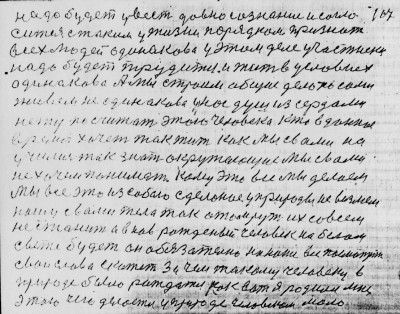 надо будет увест довно сознание и согла 107
ситя с таким у жизни порядком признат
всех людей одинакова у этом деле участники
надо будет трудится и жит в условиях
одинакова А мы строим общие дело то сами
живем не одинакова у нас души из сердами
нету посчитат этого человека кто в данное
время хочет так жит как мы с вами на
учили так знат окружающие мы с вами
не хочем понимат кому это все мы делаем
мы все это из собою сделаное у природы не возмем
нашу с вами тела так атомрут их совсем
не станит а в нов рожденый человек на белом
свете будет он обязателно на нами все посмотрит
сваи слава скажет За чем такому человеку в
природе было рождатся как хатя родили мне
этого чего делается у природе человеком мало